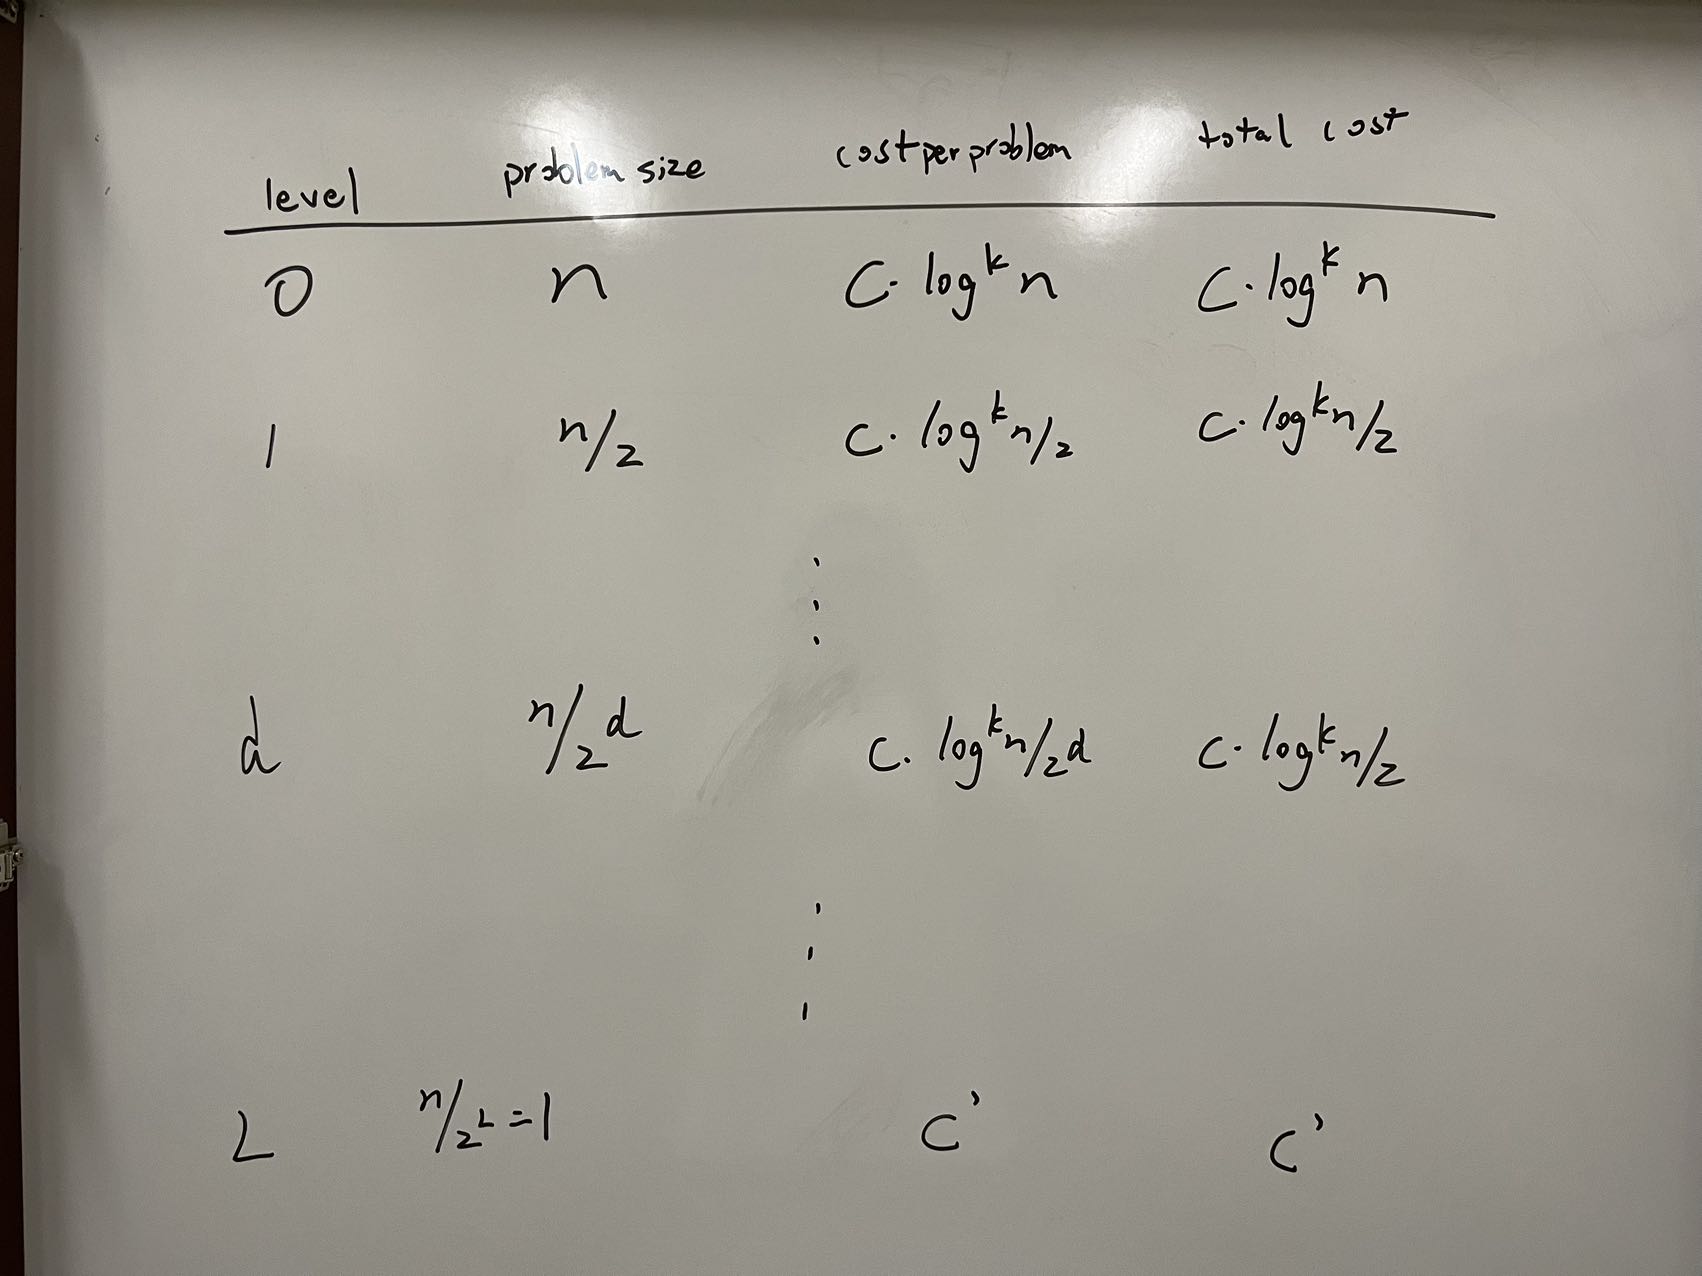 level problem size cost per problem total cost
0 n C· logᵏ n C· logᵏ n
1 n/2 C· logᵏ n/2 C· logᵏ n/2
⋮
d n/2ᵈ C· logᵏ n/2d C· logᵏ n/2
⋮
L n/2ᴸ = 1 C' C'